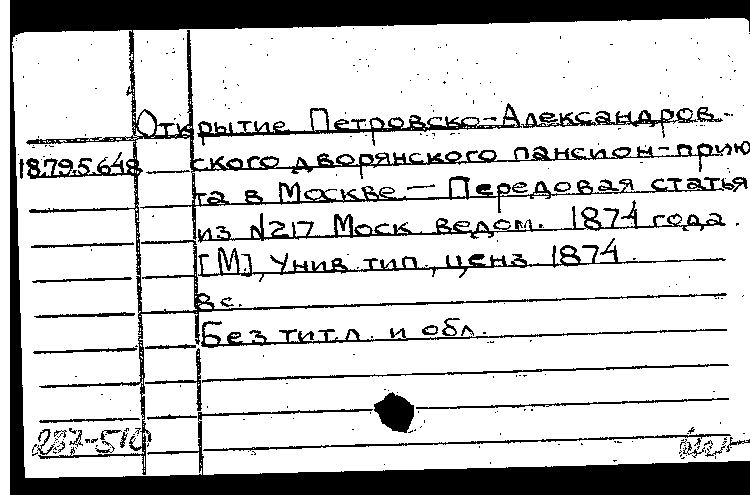 Открытие Петровско-Александров-
18.79.5.648 ского дворянского пансион-прию
та в Москве — Передовая статья
из N217 Моск ведом. 1874 года.
[М], Унив. тип., ценз 1874.
8 с.
Без тит.л. и обл.
237-510